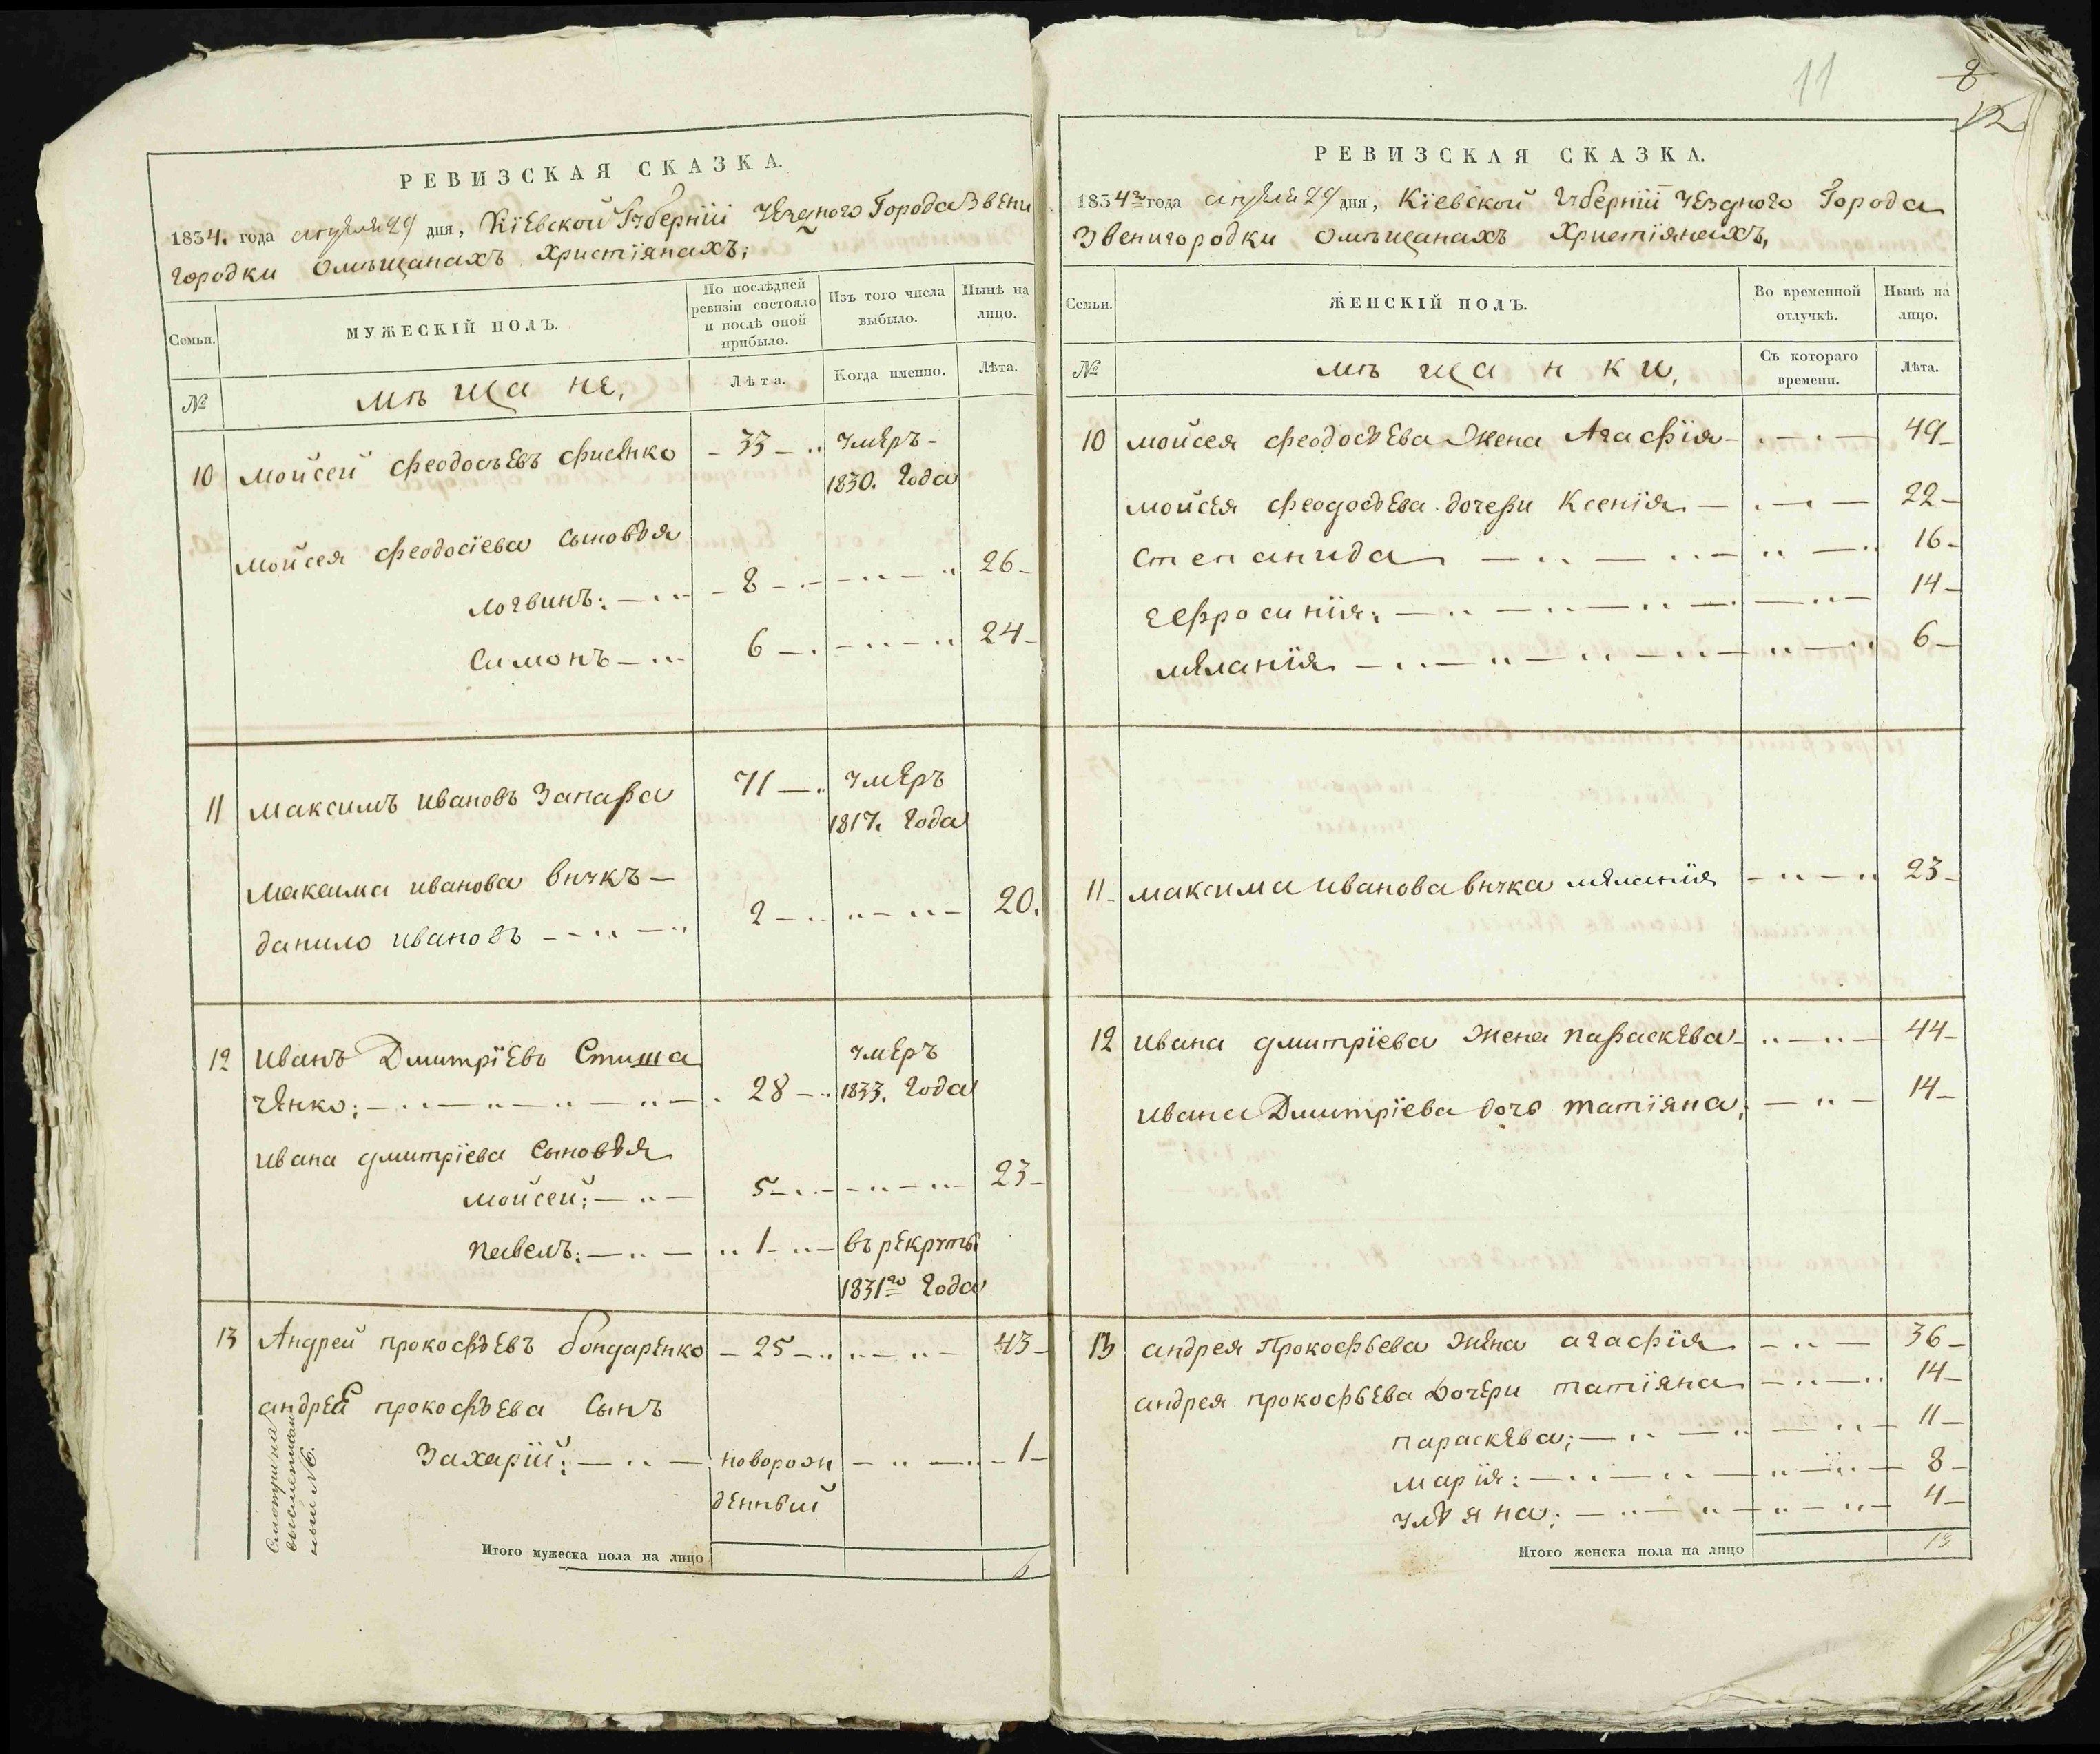 РЕВИЗСКАЯ СКАЗКА.
1834. года апреля 29 дня, Кіевской Губерніи Уезднаго Города Звени
городки Омѣщанахъ Христіянахъ;
Семьи.
МУЖЕСКІЙ ПОЛЪ.
По послѣдней ревизіи состояло и послѣ оной прибыло.
Изъ того числа выбыло.
Нынѣ на лицо.
№
мѣщане,
Лѣта.
Когда именно.
Лѣта.
10 мойсей феодосъевъ фиенко – 33 – умеръ –
1830. Года
мойсея феодосіева сыновъя
логвинъ: 8 26
Симонъ 6 24
11 максимъ ивановъ Запара 71 умеръ
1817. Года
максима иванова внукъ –
данило ивановъ 2 20.
12 иванъ Дмитріевъ Стиша умеръ
ченко: 28 1833. Года
ивана дмитріева сыновъя
мойсей: 5 23
павелъ: 1 въ рекруты
1831го Года
13 Андрей прокофъевъ бондаренко – 25 43
андрея прокофъева сынъ
Захарій: новорож 1
денный
Смотри на
№ 6.
Итого мужеска пола на лицо 6
11
8
12
РЕВИЗСКАЯ СКАЗКА.
1834го года апреля 29 дня, Кіевской Губерніи Уезднаго Города
Звенигородки Омѣщанахъ Христіянахъ,
Семьи.
ЖЕНСКІЙ ПОЛЪ.
Во временной отлучкѣ.
Нынѣ на лицо.
№
мѣщанки,
Съ котораго времени.
Лѣта.
10 мойсея феодосъева Жена Агафія 49
мойсея феодосъева дочери Ксенія 22
Степанида 16
Ефросинія: 14
меланія 6
11 максима иванова внука меланія 23
12 ивана дмитріева жена параскева 44
ивана Дмитріева дочь татіяна, 14
13 андрея Прокофьева жена агафія 36
андрея прокофьева Дочери татіяна 14
параскева; 11
марія: 8
улъяна; 4
Итого женска пола на лицо 13